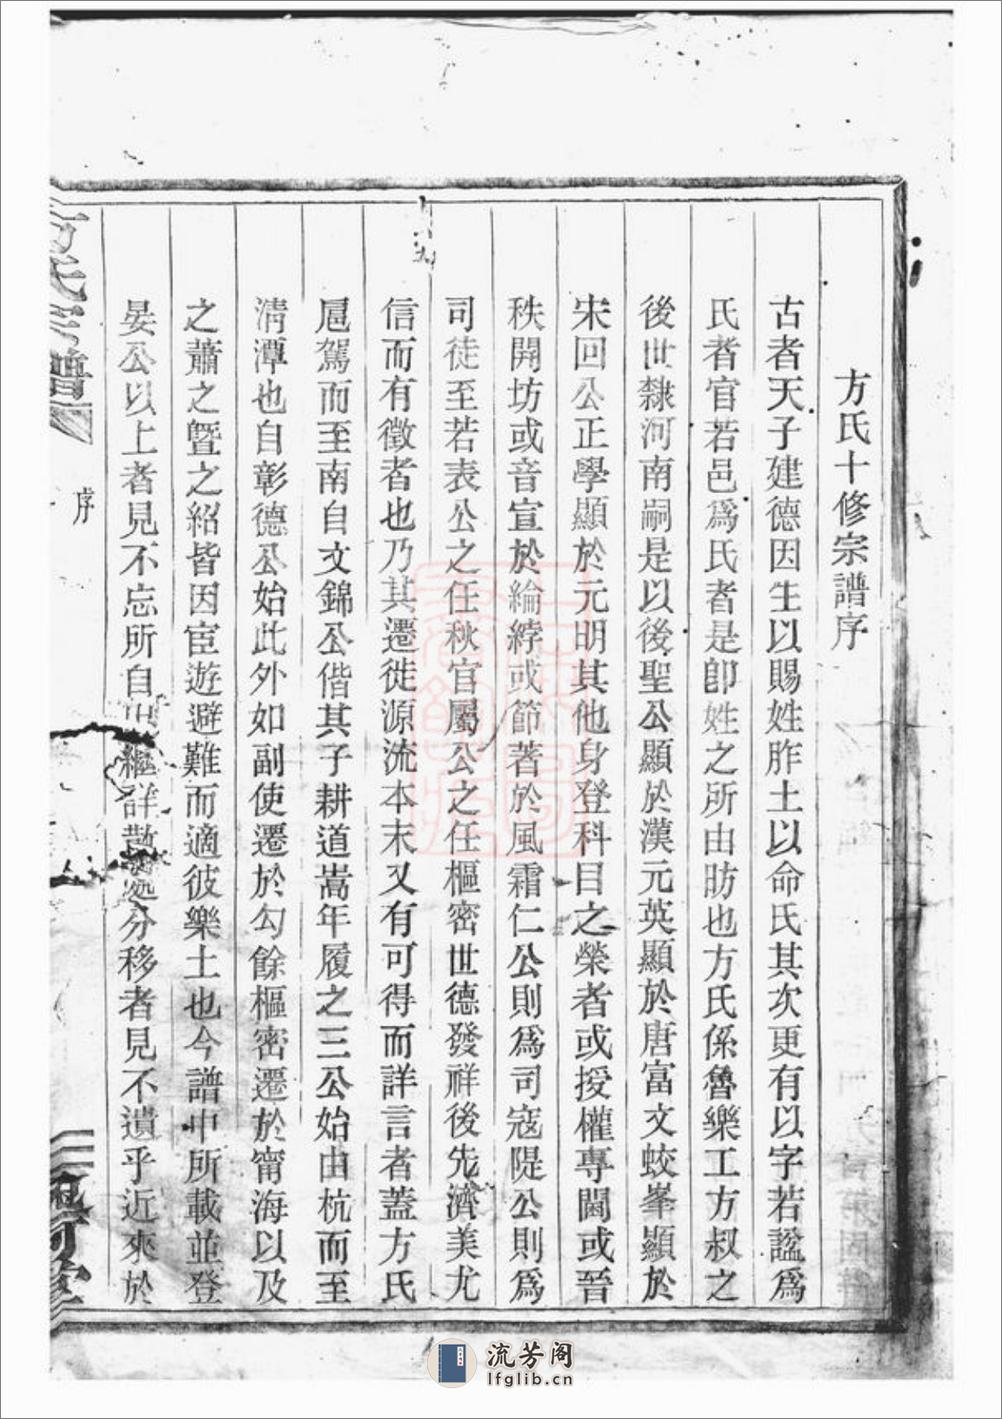 方氏十修宗譜序
古者天子建德因生以賜姓胙土以命氏其次更有以字若諡爲
氏者官若邑爲氏者是卽姓之所由昉也方氏係魯樂工方叔之
後世隸河南嗣是以後聖公顯於漢元英顯於唐富文蛟峯顯於
宋回公正學顯於元明其他身登科目之榮者或授權專閫或晉
秩開坊或音宣於綸綍或節著於風霜仁公則爲司寇隄公則爲
司徒至若表公之任秋官屬公之任樞密世德發祥後先濟美尤
信而有徵者也乃其遷徙源流本末又有可得而詳言者蓋方氏
扈駕而至南自文錦公偕其子耕道嵩年履之三公始由杭而至
淸潭也自彰德公始此外如副使遷於勾餘樞密遷於甯海以及
之蕭之曁之紹皆因宦遊避難而適彼樂土也今譜中所載並登
晏公以上者見不忘所自出繼詳散處分移者見不遺乎近來於
方氏宗譜
序
流芳阁
lfglib.cn